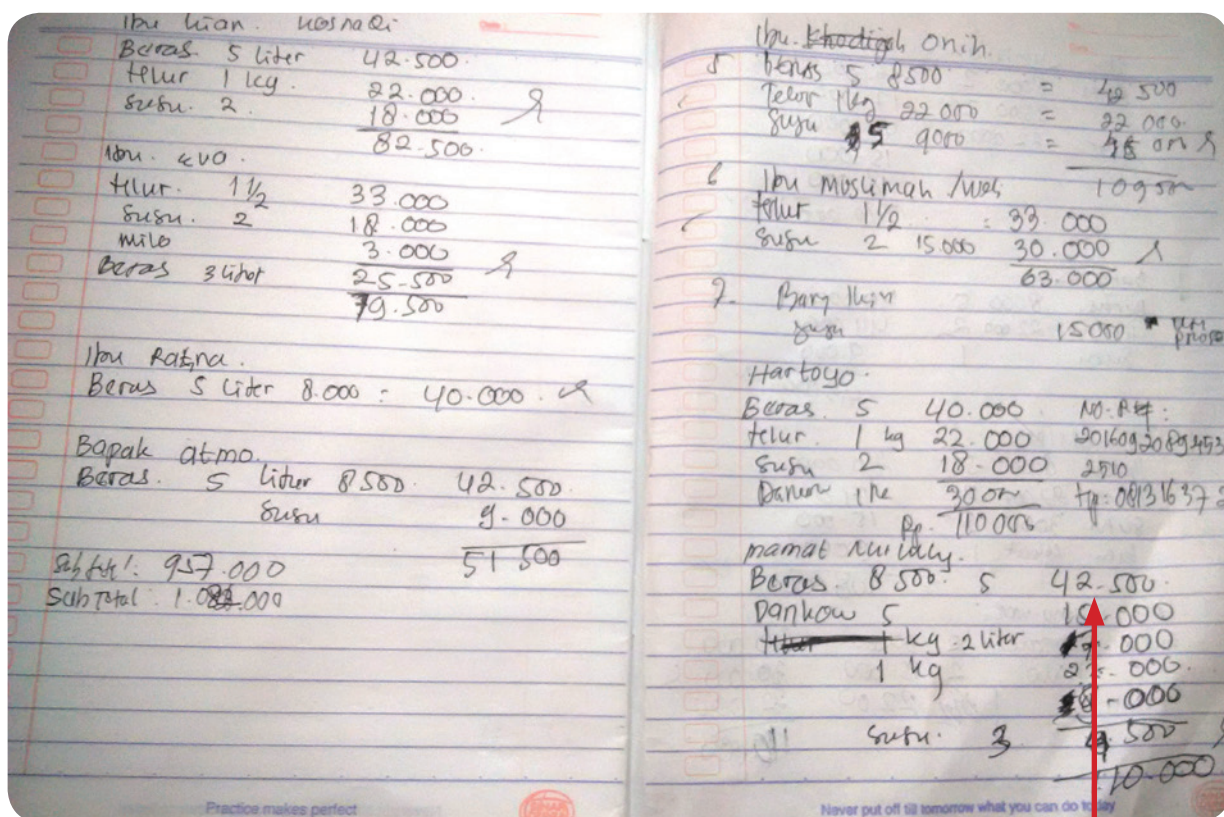 Ibu Lian. Kosnadi
Beras. 5 liter 42.500.
telur 1 kg. 22.000.
susu. 2. 18.000
82.500.
Ibu. eva.
telur. 1 1/2 33.000
susu. 2 18.000
milo 3.000
Beras 3 liter 25.500
79.500
Ibu Ratna.
Beras 5 liter 8.000 = 40.000.
Bapak atmo.
Beras. 5 liter 8500. 42.500.
susu 9.000
51 500
Subtotal: 957.000
Sub Total 1.082.000
Practice makes perfect
Ibu. Khodijah Onih.
5 beras 5 8500 = 42 500
Telor 1 kg 22 000 = 22 000.
Susu 5 9000 = 45 000
109500
6 Ibu Muslimah /
telur 1 1/2 : 33.000
susu 2 15.000 30.000
63.000
7. Bang
susu 15000
Hartoyo.
Beras. 5 40.000. No. Reg:
telur. 1 kg 22.000
susu 2 18.000 2510
Dancow 30000
Rp. 110000
mamat
Beras. 8 500. 5 42.500.
Dankow 5 15.000
telur 1 kg - 2 liter 000
1 kg 000.
000
susu. 3 500
10.000
Never put off till tomorrow what you can do today